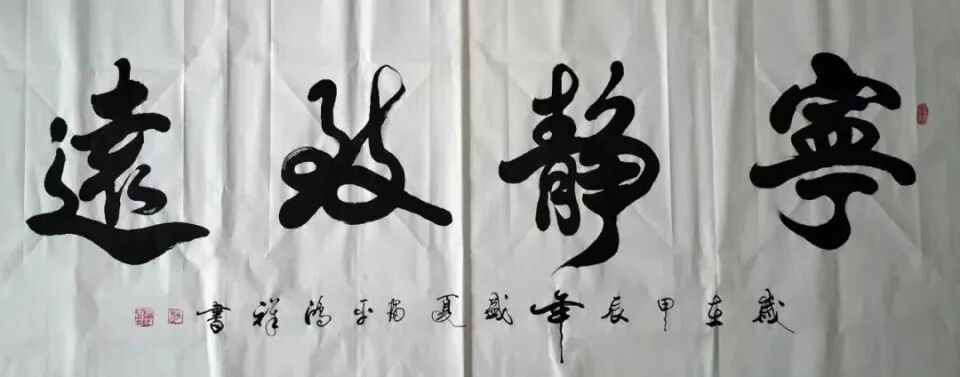 寧靜致遠
歲在甲辰年盛夏楊平鴻祥書